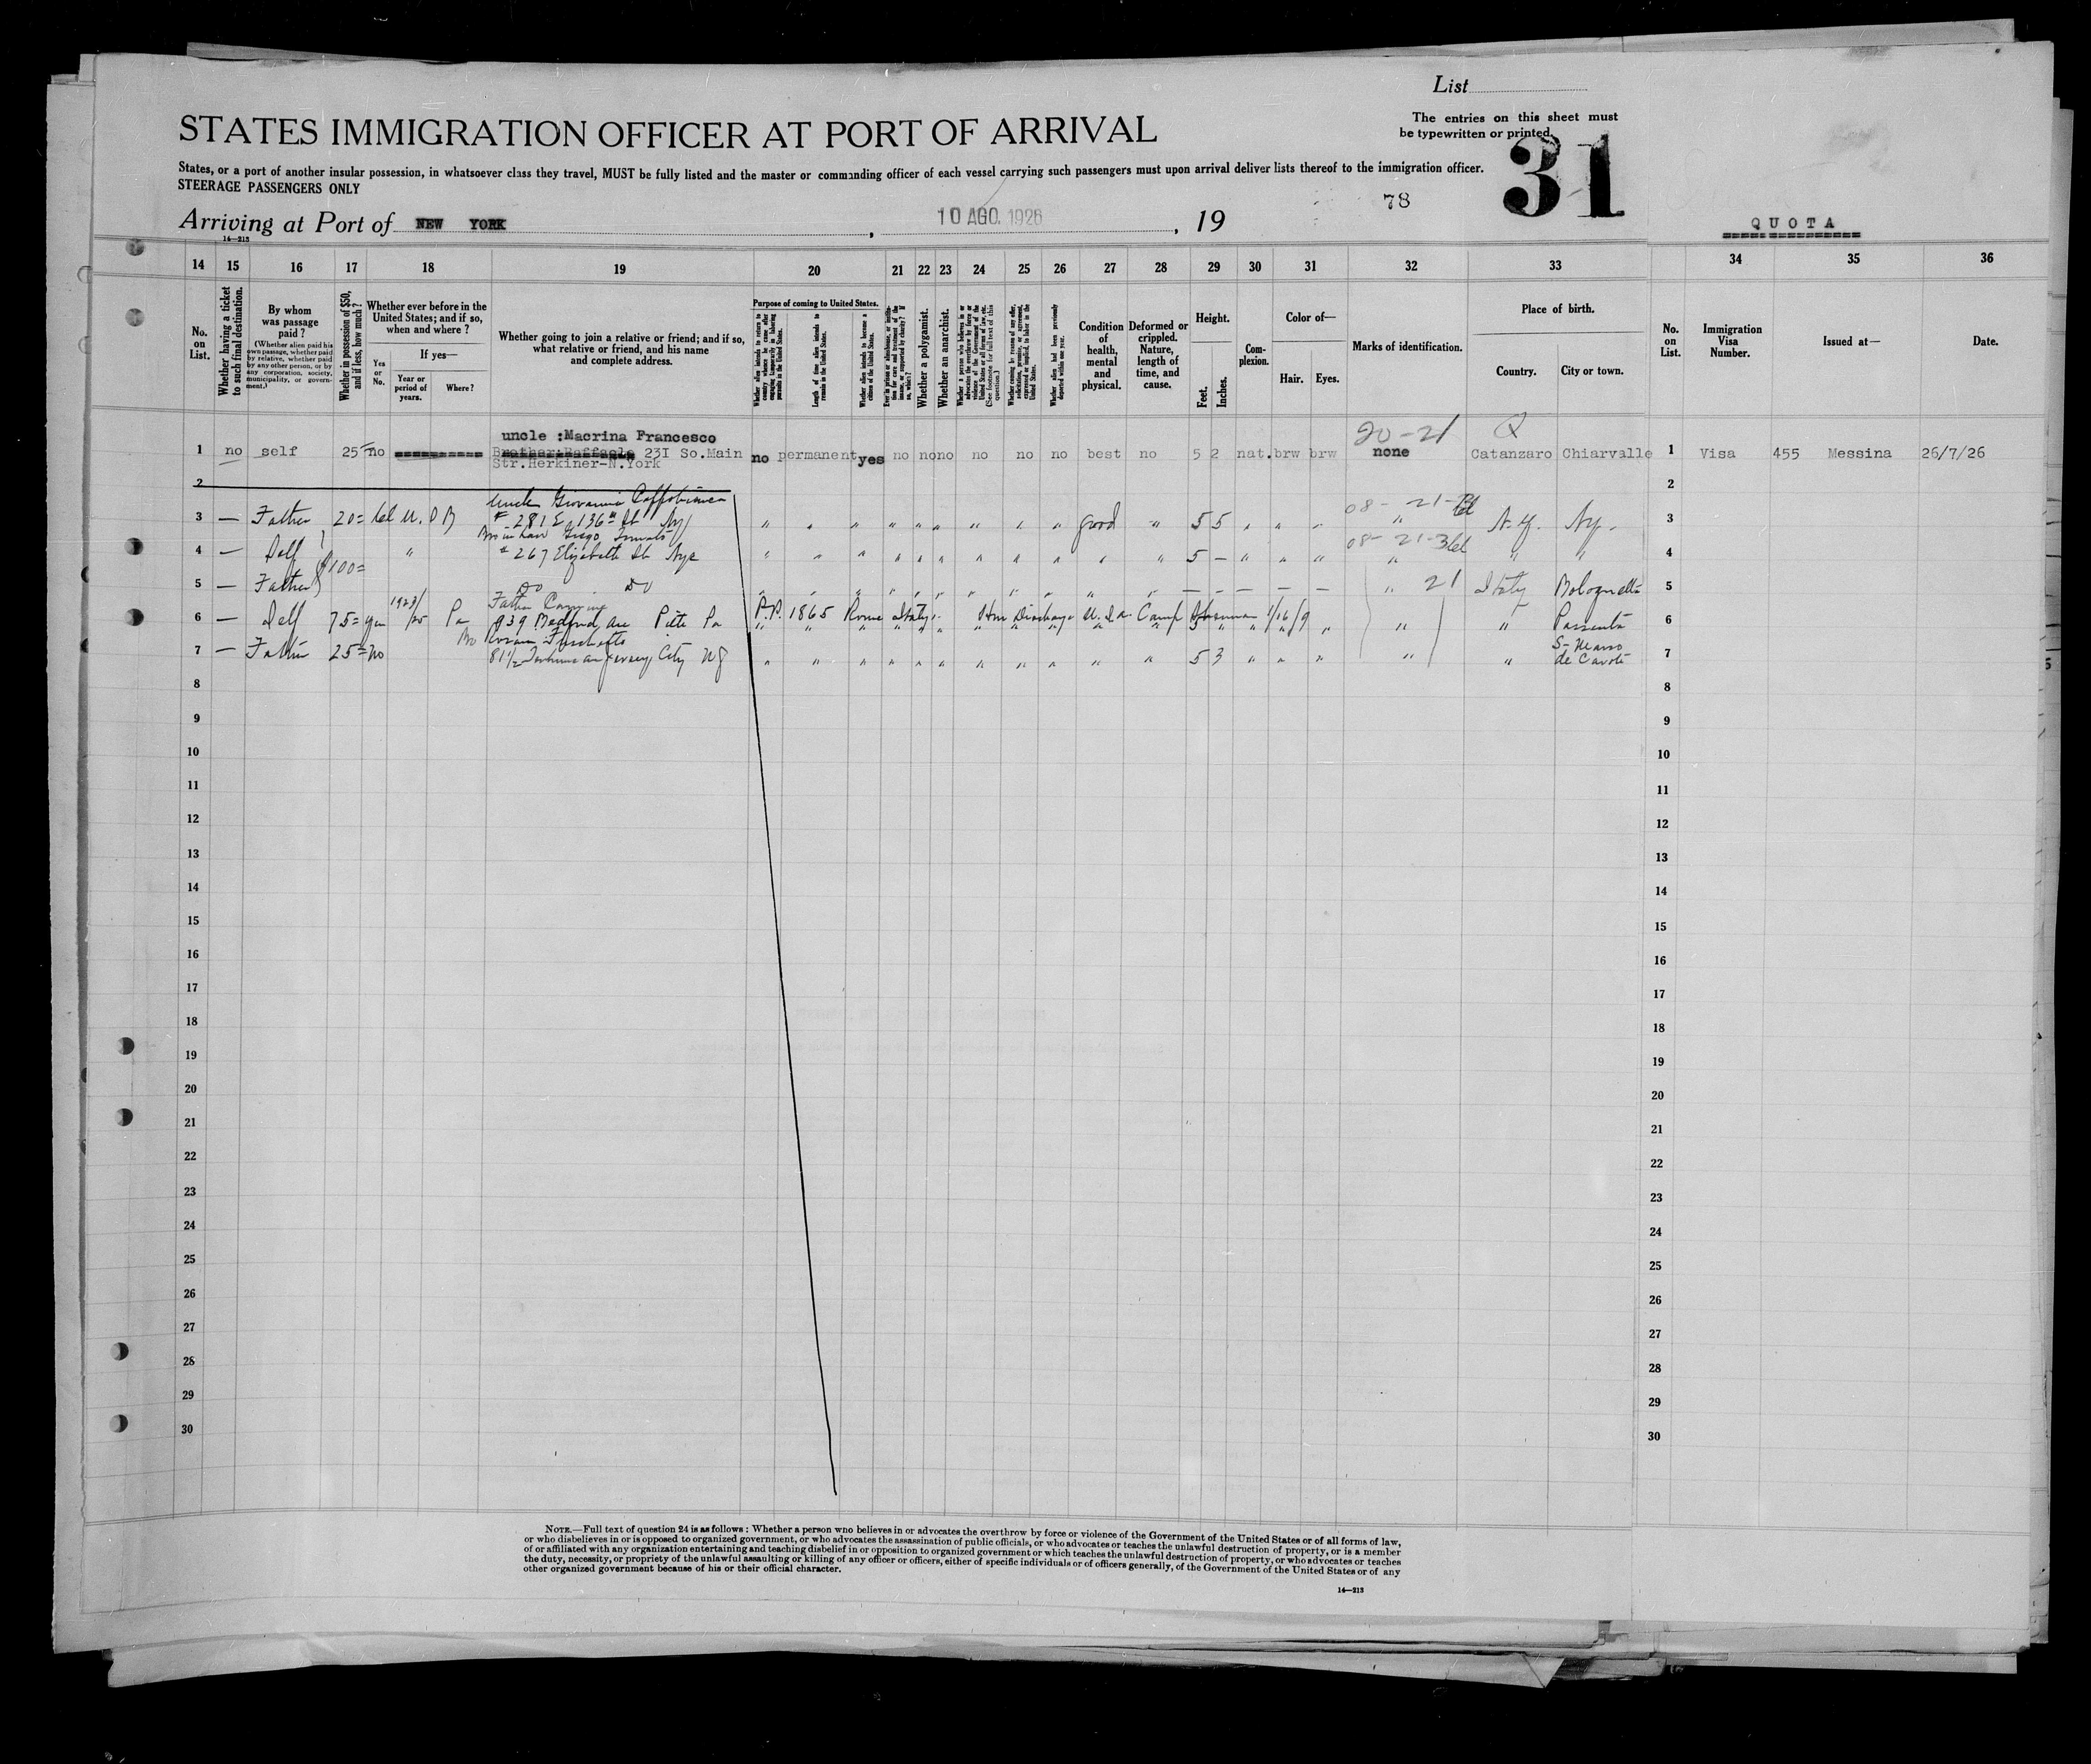 List
STATES IMMIGRATION OFFICER AT PORT OF ARRIVAL
The entries on this sheet must
be typewritten or printed.
31
States, or a port of another insular possession, in whatsoever class they travel, MUST be fully listed and the master or commanding officer of each vessel carrying such passengers must upon arrival deliver lists thereof to the immigration officer.
STEERAGE PASSENGERS ONLY
78
Arriving at Port of NEW YORK, 10 AGO. 1926, 19
14—213
QUOTA
14 15 16 17 18 19 20 21 22 23 24 25 26 27 28 29 30 31 32 33 34 35 36
No. on List.
Whether having a ticket to such final destination.
By whom was passage paid?
(Whether alien paid his own passage, whether paid by relative, whether paid by any other person, or by any corporation, society, municipality, or government.)
Whether in possession of $50, and if less, how much?
Whether ever before in the United States; and if so, when and where?
Yes or No.
If yes—
Year or period of years.
Where?
Whether going to join a relative or friend; and if so, what relative or friend, and his name and complete address.
Purpose of coming to United States.
Length of time alien intends to remain in the United States.
Whether alien intends to become a citizen of the United States.
Whether a polygamist.
Whether an anarchist.
(See footnote for full text of this question.)
Condition of health, mental and physical.
Deformed or crippled. Nature, length of time, and cause.
Height.
Feet. Inches.
Complexion.
Color of—
Hair. Eyes.
Marks of identification.
Place of birth.
Country. City or town.
No. on List.
Immigration Visa Number.
Issued at—
Date.
20-21 Q
uncle :Macrina Francesco
1 no self 25 no Brother:Raffaele 231 So.Main no permanent yes no no no no no no best no 5 2 nat. brw brw none Catanzaro Chiarvalle 1 Visa 455 Messina 26/7/26
Str.Herkiner-N.York
2 2
Uncle Giovanni
3 — Father 20= # 281 E 136th St Ny " " " " " " " " " good " 5 5 " " " 08- 21- N.Y. Ny. 3
4 — Self " # 267 Elizabeth St Nyc " " " " " " " " " " " 5 — " " " 08- 21-3 " " 4
$100=
5 — Father Do Do " " " " " " " " " " " — — — — — " 21 Italy 5
6 — Self 75= yes 1923/25 Pa Father 939 Bedford Ave Pitts Pa P.P. 1865 Rome Italy Hon Discharge U.S.A. Camp 1/16/9 " " 6
7 — Father 25= no 81 1/2 City NJ " " " " " " " " " " " 5 3 " " " " " 7
8 8
9 9
10 10
11 11
12 12
13 13
14 14
15 15
16 16
17 17
18 18
19 19
20 20
21 21
22 22
23 23
24 24
25 25
26 26
27 27
28 28
29 29
30 30
NOTE.—Full text of question 24 is as follows: Whether a person who believes in or advocates the overthrow by force or violence of the Government of the United States or of all forms of law,
or who disbelieves in or is opposed to organized government, or who advocates the assassination of public officials, or who advocates or teaches the unlawful destruction of property, or is a member
of or affiliated with any organization entertaining and teaching disbelief in or opposition to organized government or which teaches the unlawful destruction of property, or who advocates or teaches
the duty, necessity, or propriety of the unlawful assaulting or killing of any officer or officers, either of specific individuals or of officers generally, of the Government of the United States or of any
other organized government because of his or their official character.
14—213